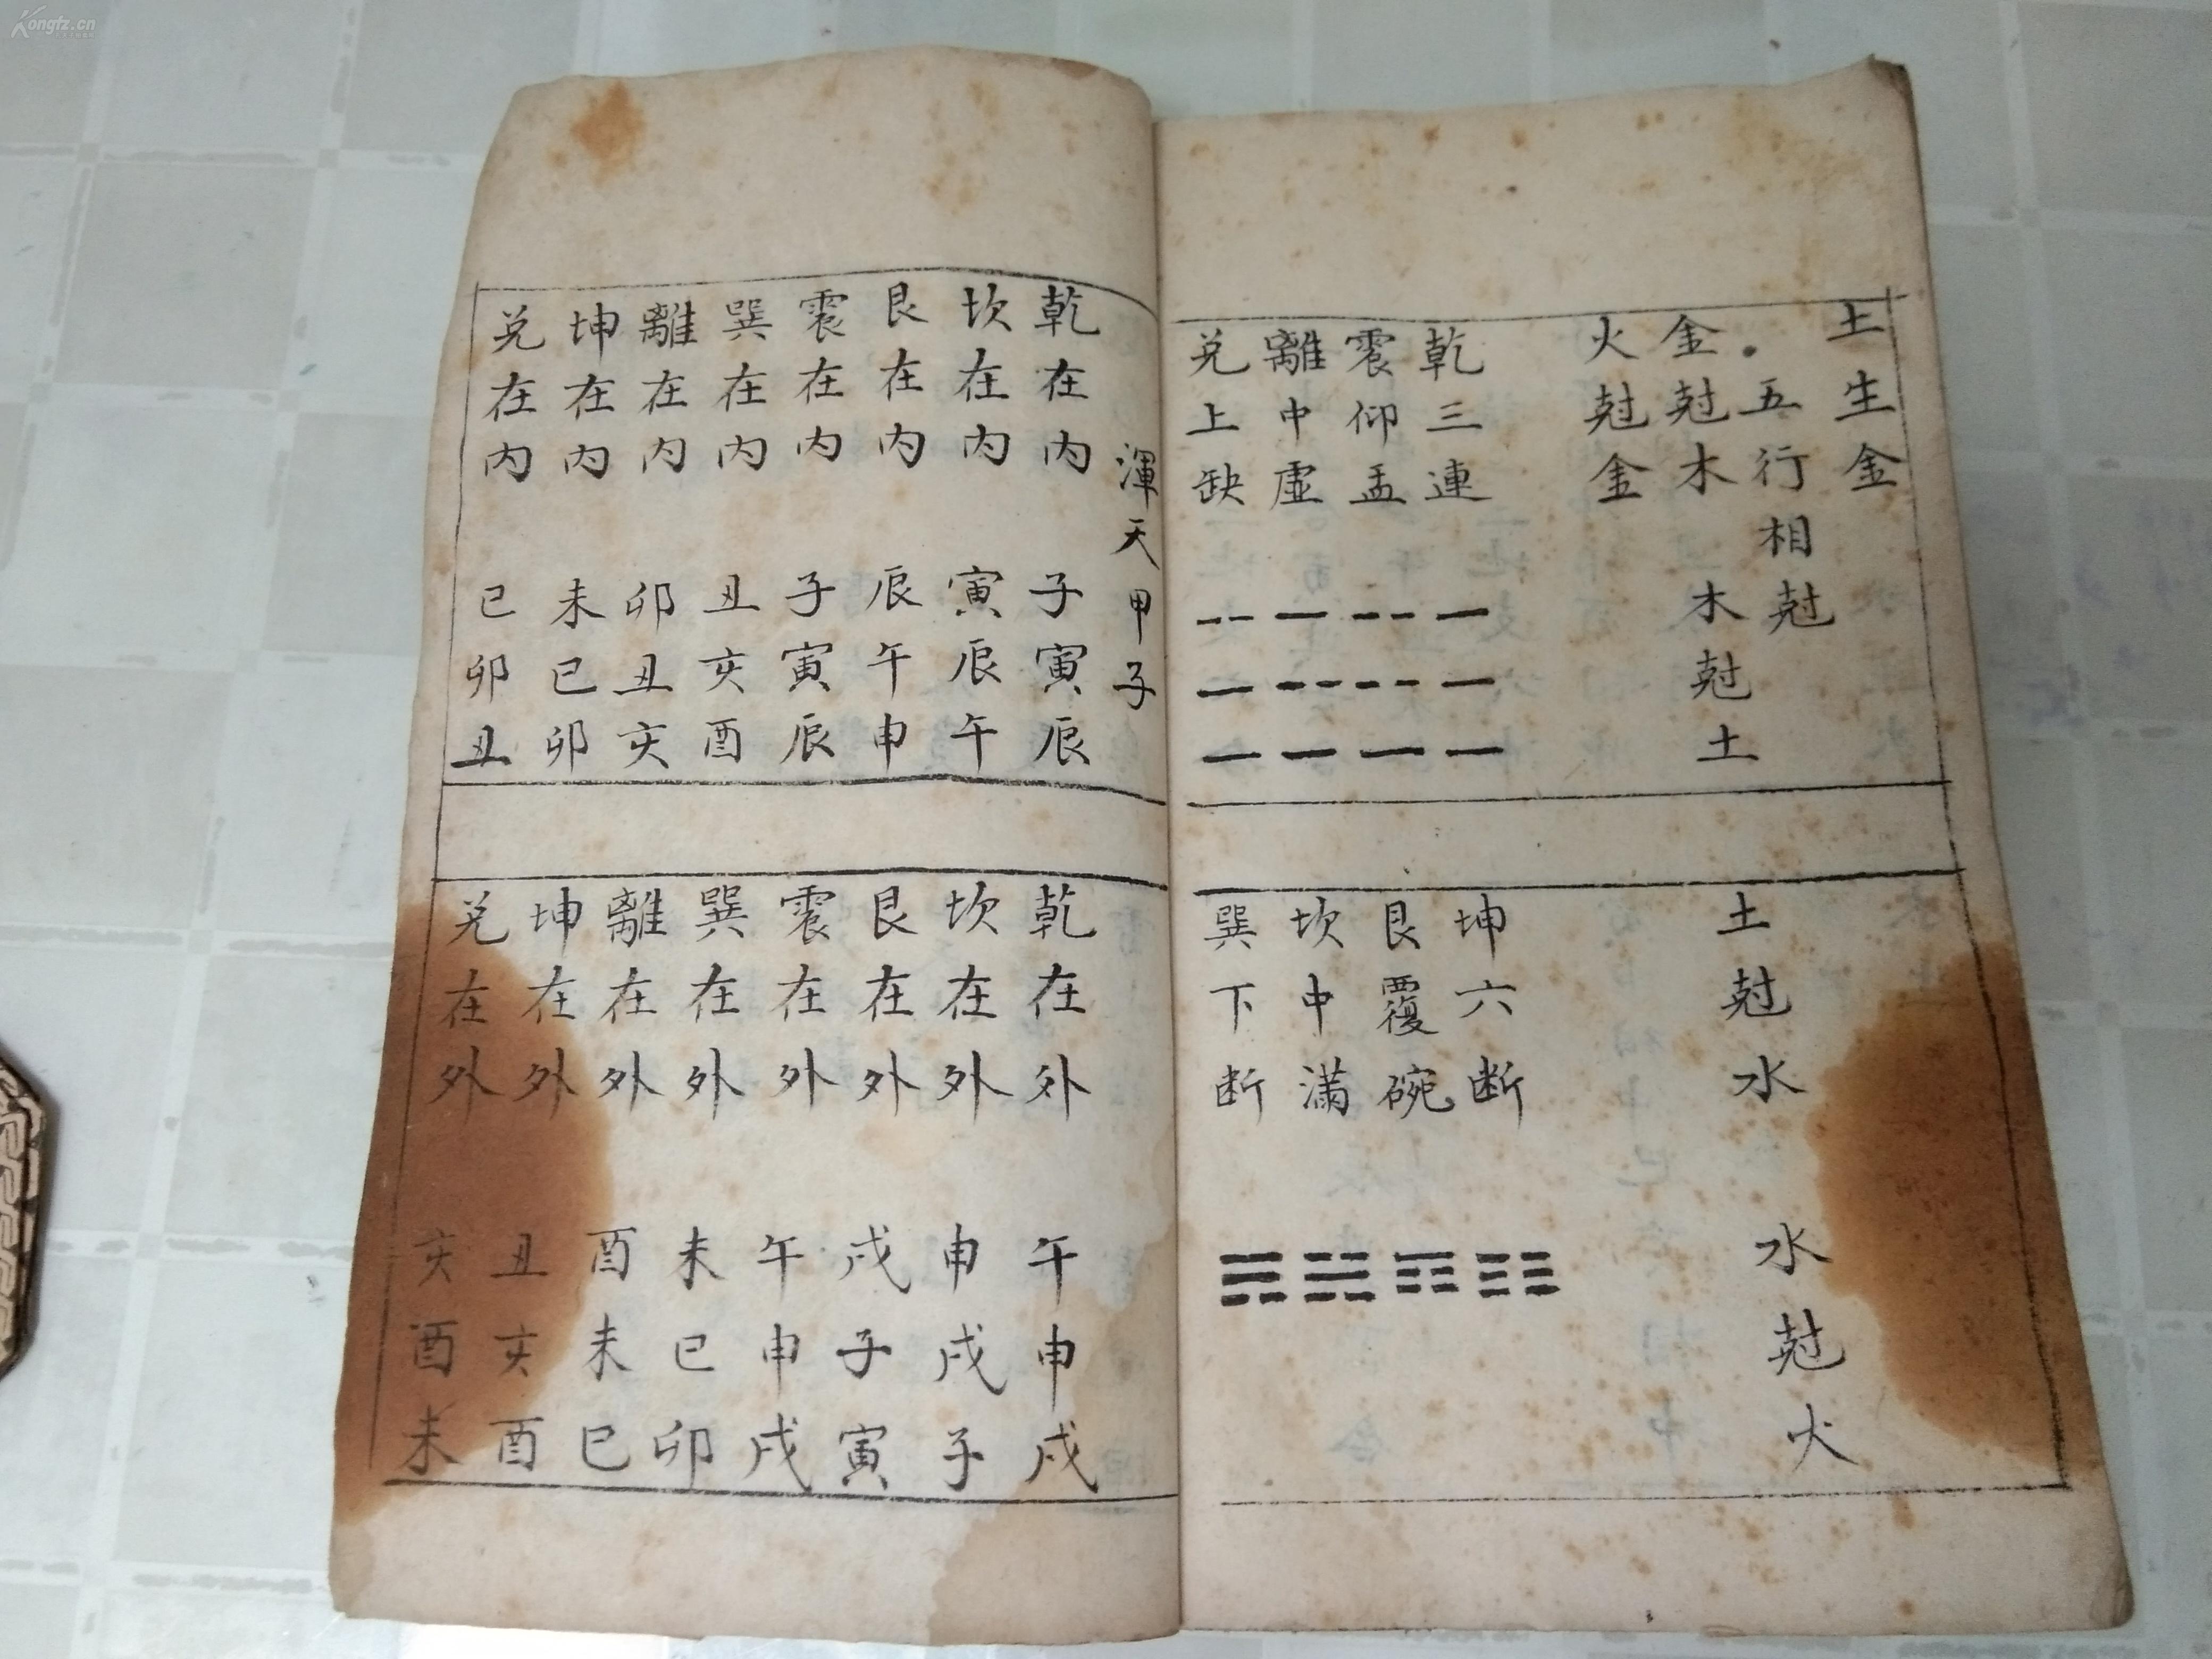 土生金
五行相尅
金尅木
木尅土
土尅水
水尅火
火尅金
乾三連
坤六断
震仰盂
艮覆碗
離中虛
坎中滿
兑上缺
巽下断
渾天甲子
乾在内 子寅辰
坎在内 寅辰午
艮在内 辰午申
震在内 子寅辰
巽在内 丑亥酉
離在内 卯丑亥
坤在内 未巳卯
兑在内 巳卯丑
乾在外 午申戌
坎在外 申戌子
艮在外 戌子寅
震在外 午申戌
巽在外 未巳卯
離在外 酉未巳
坤在外 丑亥酉
兑在外 亥酉未
Kongfz.cn